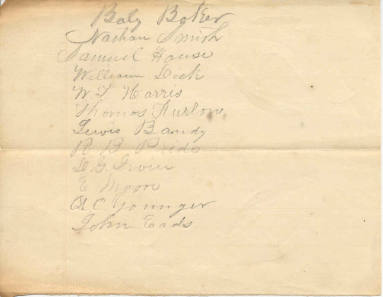 Baly Baker
Nathan Smith
Samuel House
William Dock
W L Harris
Thomas Furlow
Lewis Bandy
R B
E Moon
A C Younger
John Eads